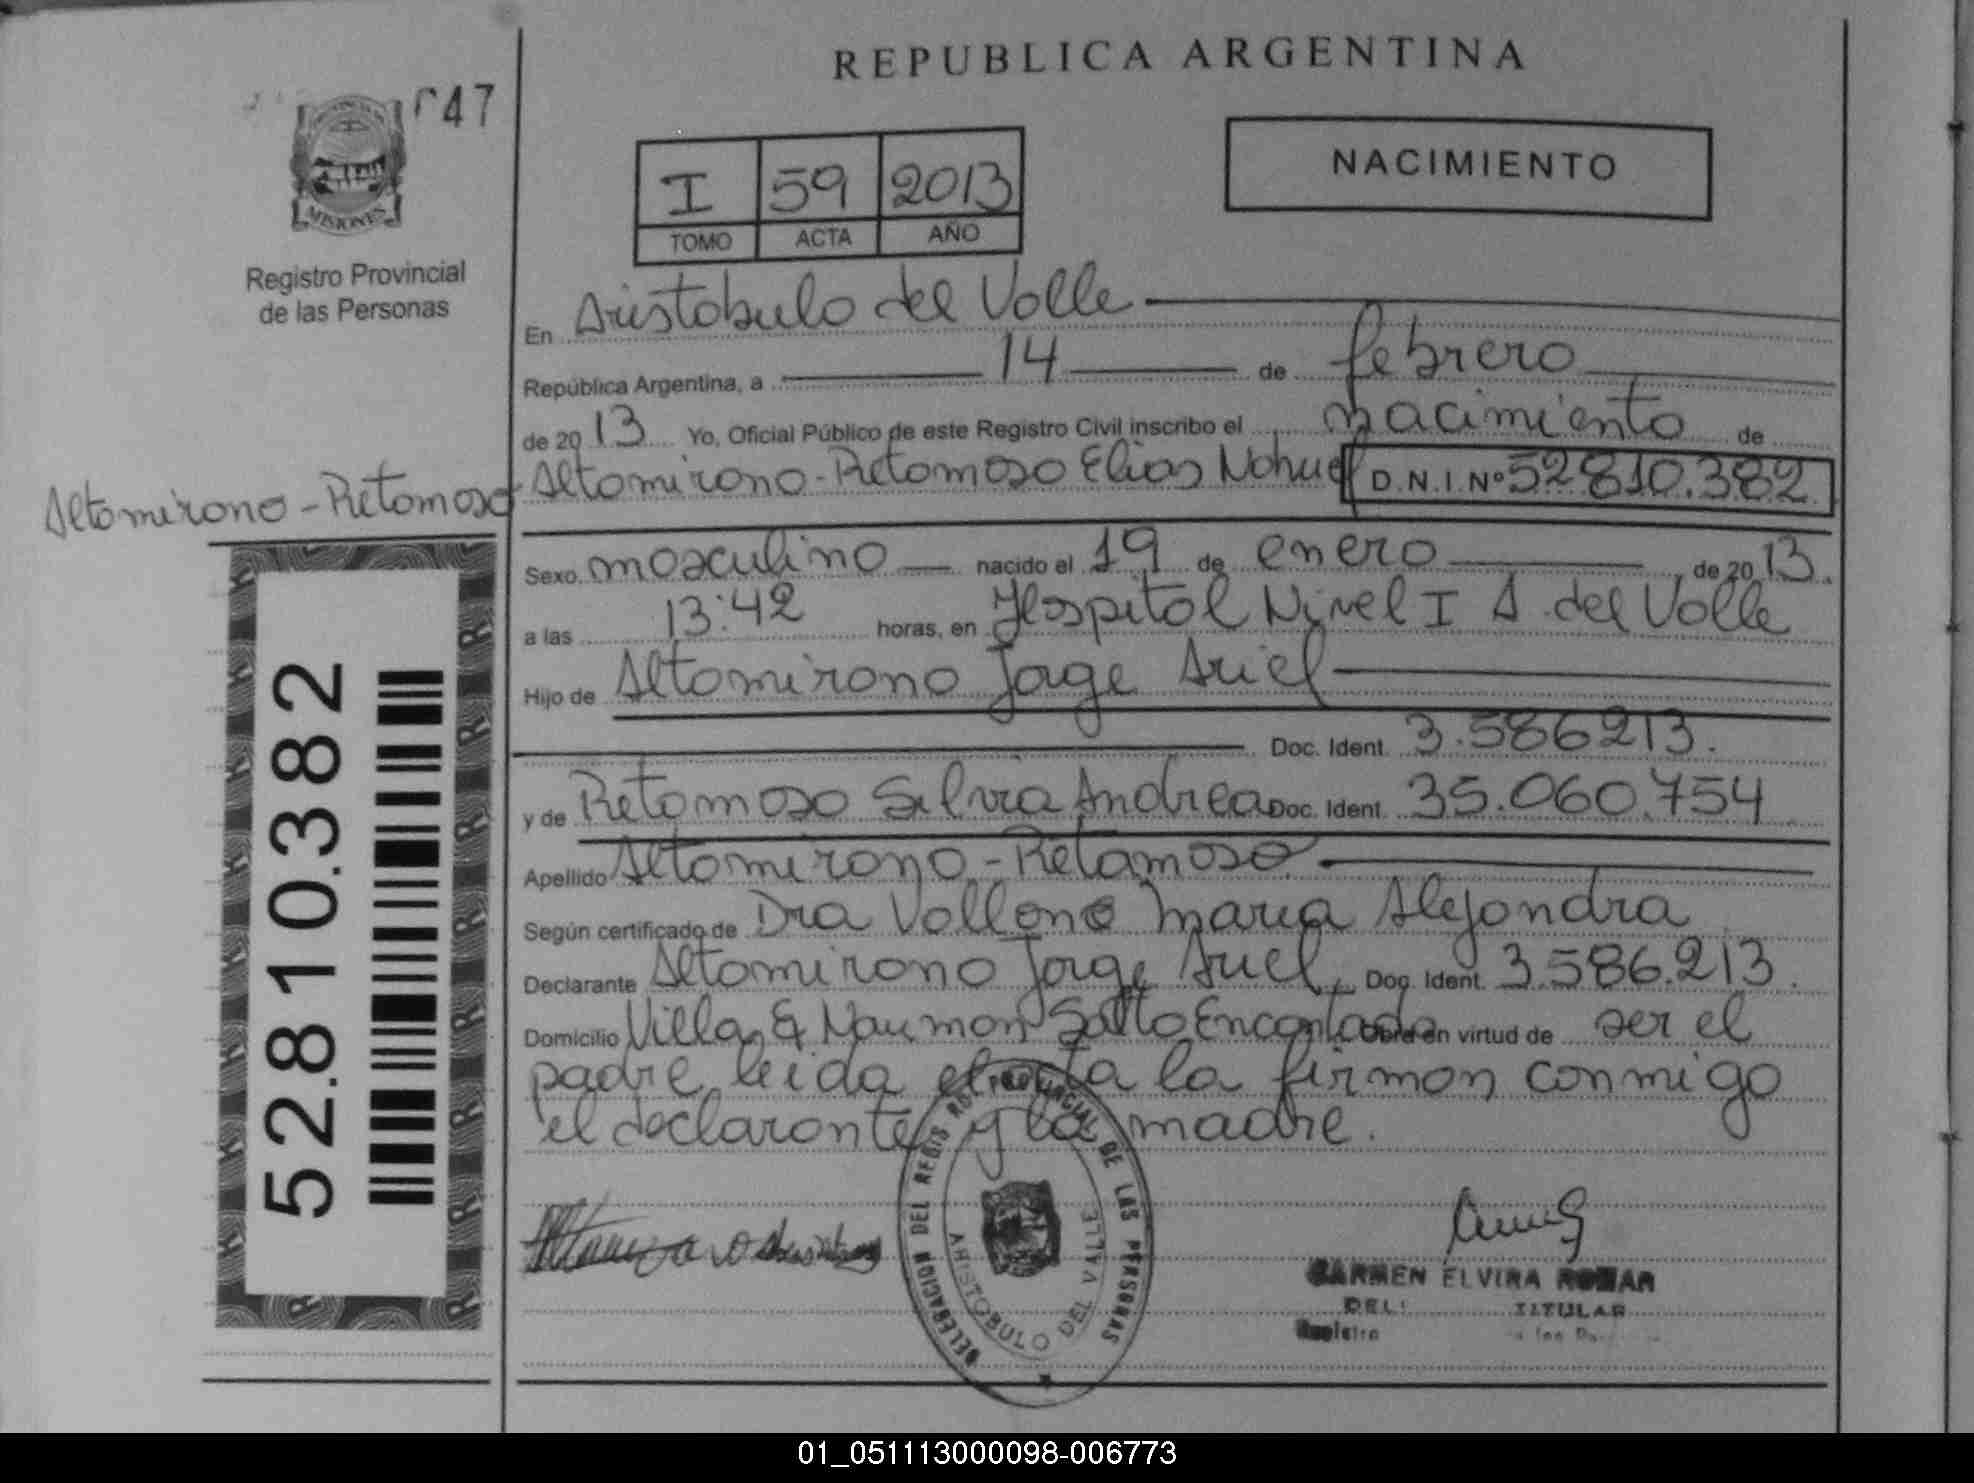 REPUBLICA ARGENTINA
047
MISIONES
Registro Provincial
de las Personas
I 59 2013
TOMO ACTA AÑO
NACIMIENTO
En Aristobulo del Valle
República Argentina, a 14 de febrero
de 2013 Yo, Oficial Público de este Registro Civil inscribo el nacimiento de
Altamirano-Retamoso Elias Nahuel D.N.I.Nº 52810.382
Altamirano-Retamoso
Sexo masculino nacido el 19 de enero de 2013
a las 13:42 horas, en Hospital Nivel I A. del Valle
Hijo de Altamirano Jorge Ariel
Doc. Ident. 3.586213.
y de Retamoso Silvia Andrea Doc. Ident. 35.060.754
Apellido Altamirano-Retamoso
Según certificado de Dra Vallone Maria Alejandra
Declarante Altamirano Jorge Ariel Doc. Ident. 3.586.213.
Domicilio Villa Salto Encantado Obra en virtud de ser el
padre, leida el acta la firman conmigo
el declarante y la madre.
52.810.382
DELEGACION DEL REGISTRO PROVINCIAL DE LAS PERSONAS
ARISTOBULO DEL VALLE
CARMEN ELVIRA
TITULAR
Registro
01_051113000098-006773